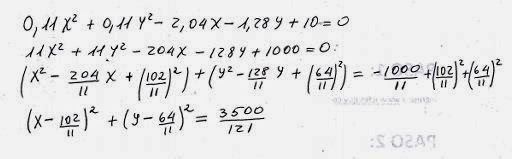 0,11X² + 0,11Y² - 2,04X - 1,28Y + 10 = 0
11X² + 11Y² - 204X - 128Y + 1000 = 0.
(X² - 204/11 X + (102/11)²) + (Y² - 128/11 Y + (64/11)²) = -1000/11 + (102/11)² + (64/11)²
(X - 102/11)² + (Y - 64/11)² = 3500/121
PASO 1:
PASO 2: